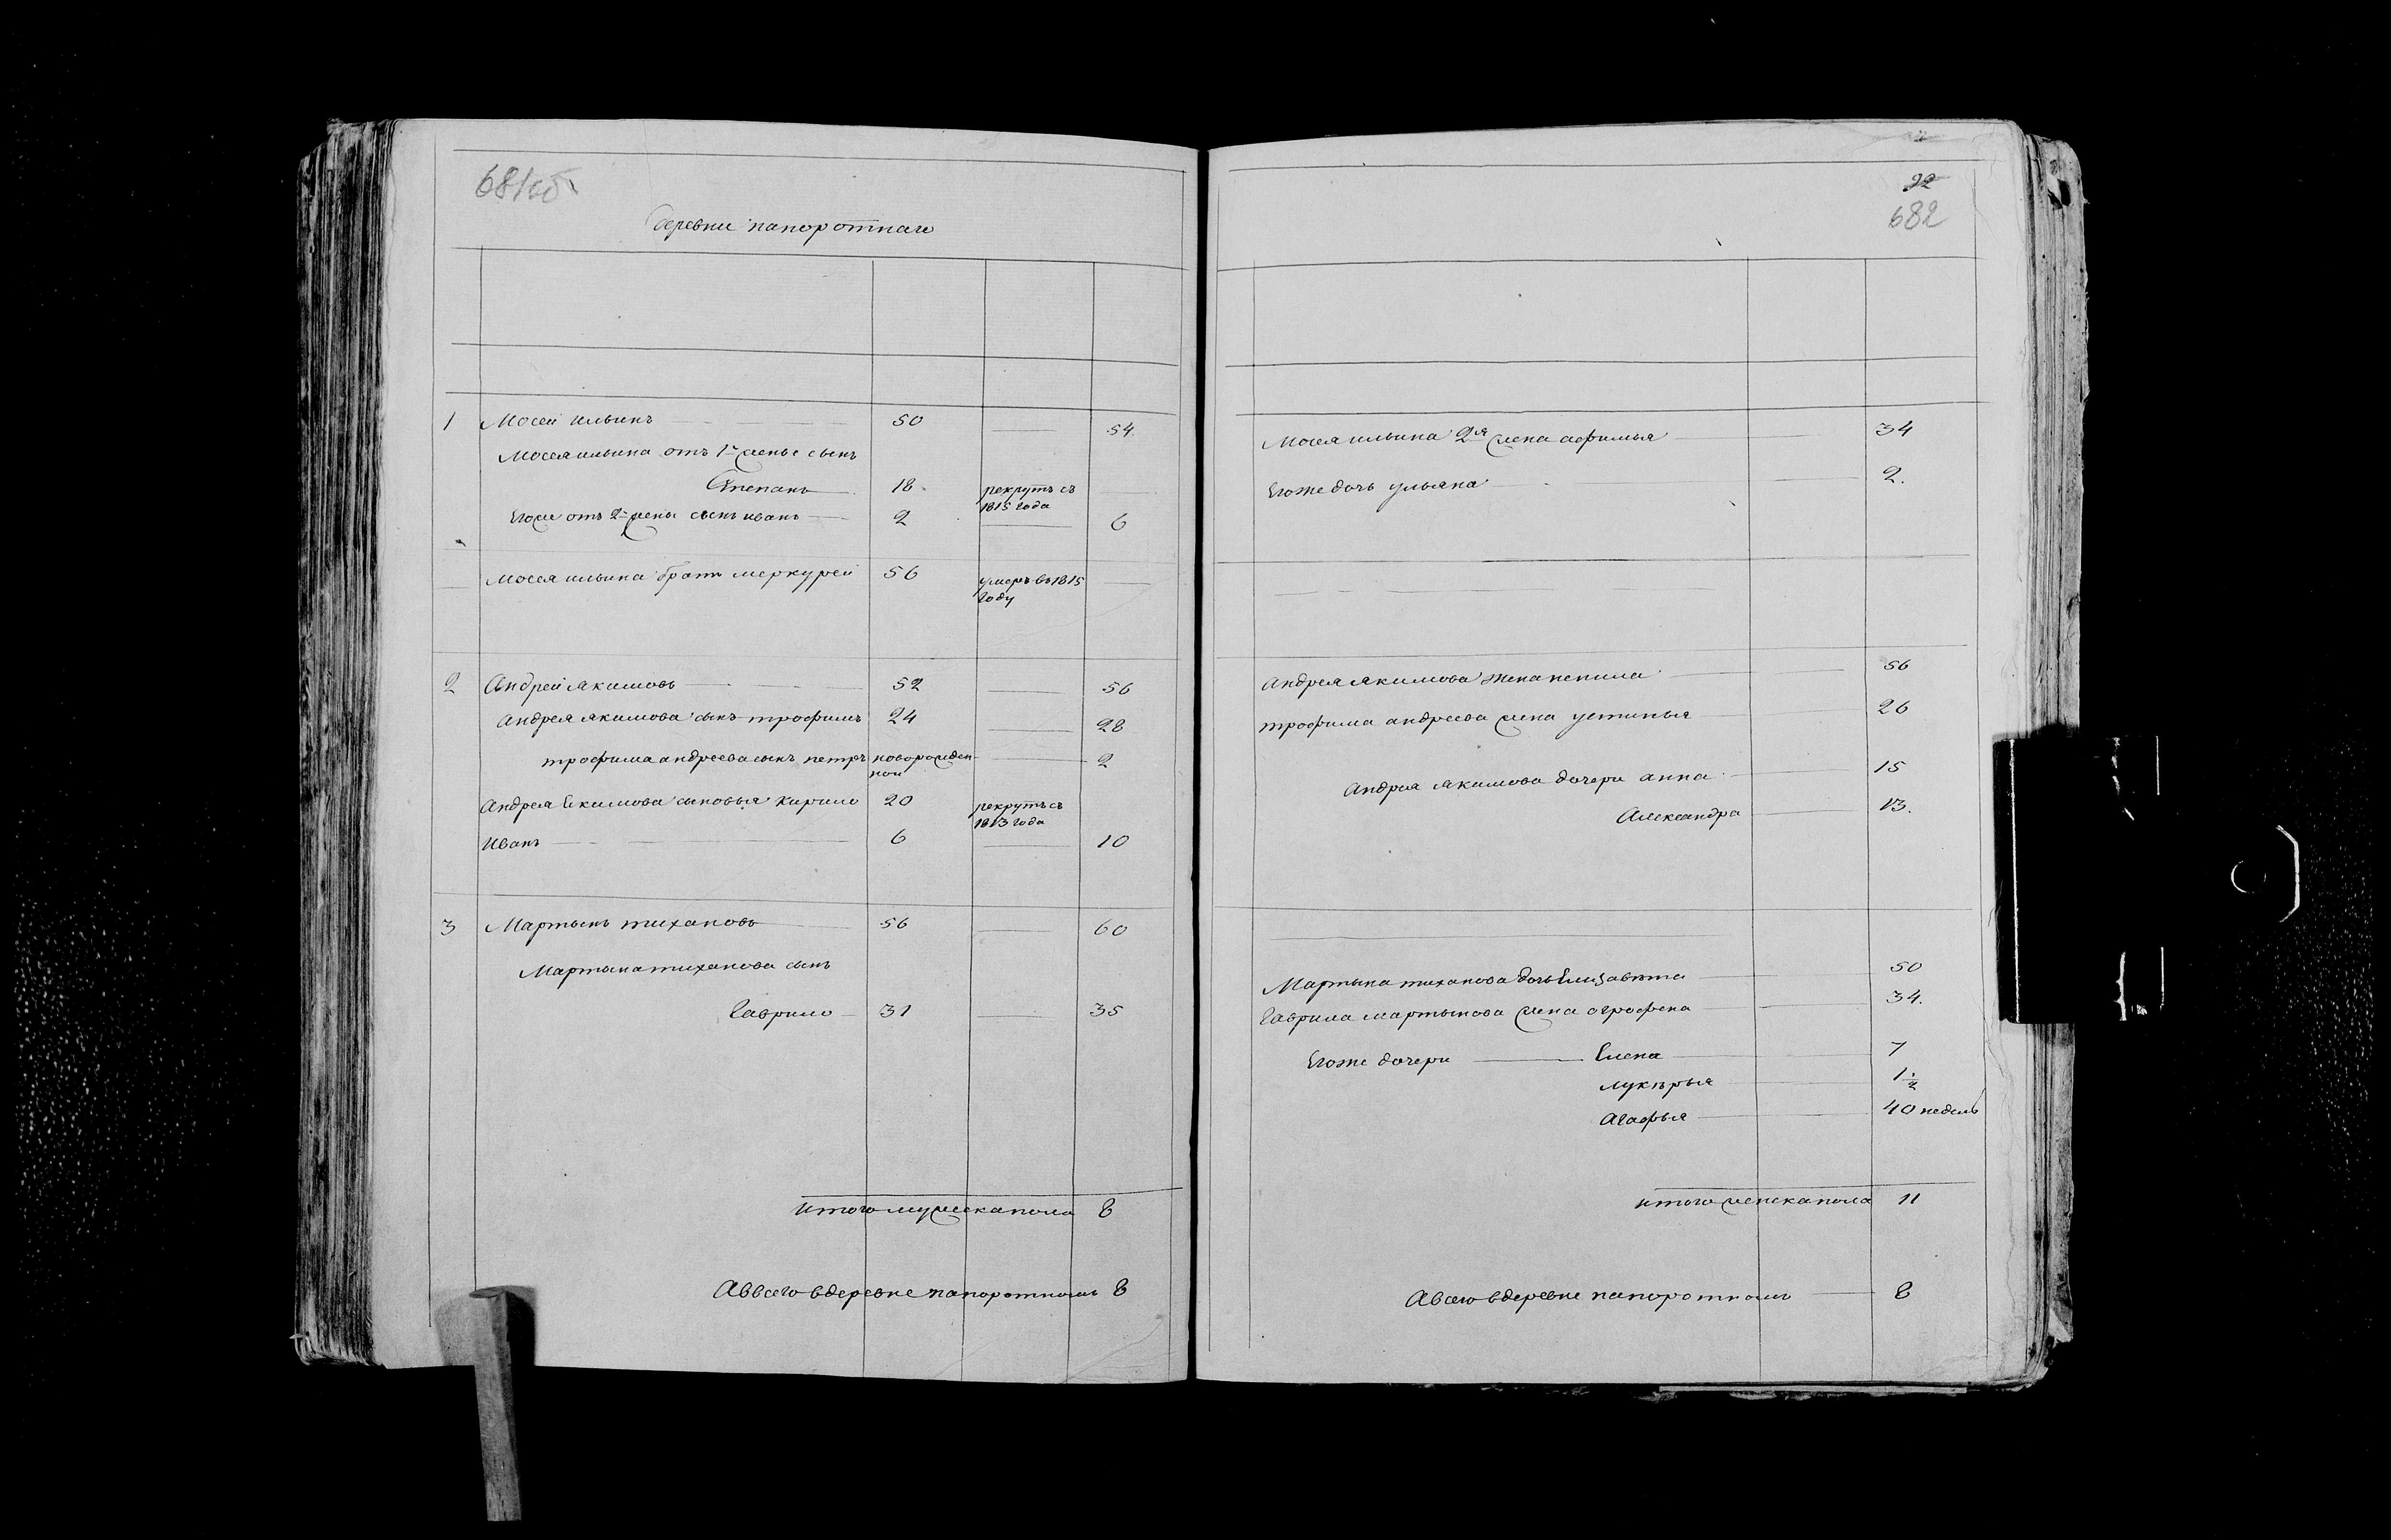 681об
деревни папоротнаго
1 Мосей ильинъ 50 54
Мосея ильина отъ 1й жены сынъ
Степанъ 18 рекрутъ съ
1815 года
Егоже от 2й жены сынъ иванъ 2 6
Мосея ильина братъ меркурей 56 умеръ въ 1815
году
2 Андрей якимовъ 52 56
Андрея якимова сынъ трофимъ 24 28
трофима андреева сынъ петръ новорожден
ной 2
Андрея Екимова сыновья Кирило 20 рекрутъ съ
1813 года
Иванъ 6 10
3 Мартынъ тихановъ 56 60
Мартына тиханова сынъ
Гаврило 31 35
итого мужеска пола 8
А ввсего вдеревне папоротномъ 8
22
682
Мосея ильина 2я жена афимья 34
Егоже дочь ульяна 2
Андрея якимова жена ненила 56
трофима андреева жена устинья 26
Андрея якимова дочери анна 15
Александра 13
Мартына тиханова дочь Елизавѣта 50
Гаврила мартынова жена огрофена 34
Егоже дочери Елена 7
лукѣрья 1 1/2
Агафья 40 недель
итого женска пола 11
А всего вдеревне папоротномъ 8